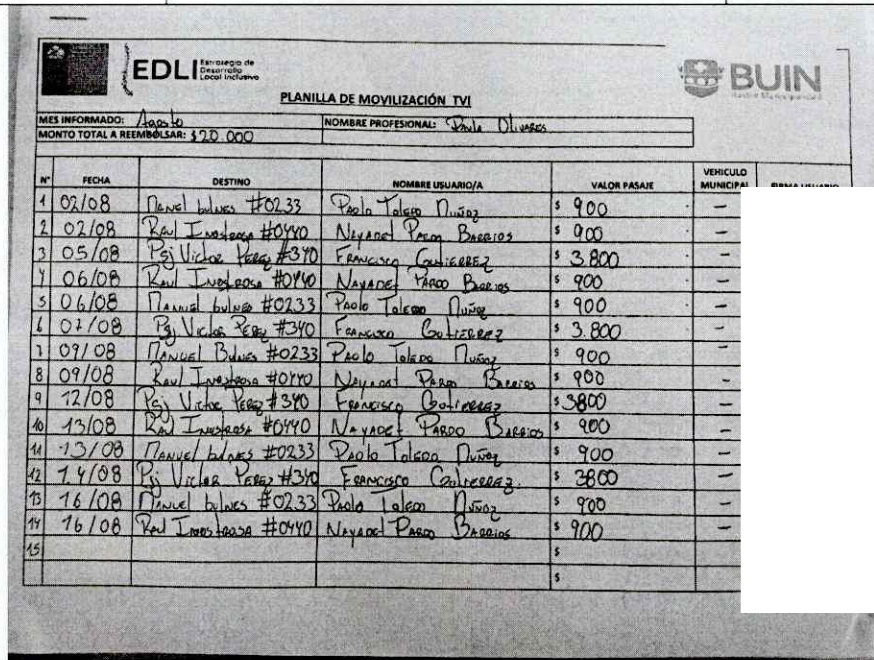 EDLI Estrategia de Desarrollo Local Inclusivo
BUIN
PLANILLA DE MOVILIZACIÓN TVI
MES INFORMADO: Agosto NOMBRE PROFESIONAL: Paula Olivares
MONTO TOTAL A REEMBOLSAR: $20.000
N° FECHA DESTINO NOMBRE USUARIO/A VALOR PASAJE VEHICULO MUNICIPAL
1 02/08 Manuel bulnes #0233 Paolo Toledo Muñoz $ 900 -
2 02/08 Raul Inostrosa #0440 Nayadet Pardo Barrios $ 900 -
3 05/08 Psj Victor Perez #340 Francisco Gutierrez $ 3.800 -
4 06/08 Raul Inostrosa #0440 Nayadet Pardo Barrios $ 900 -
5 06/08 Manuel bulnes #0233 Paolo Toledo Muñoz $ 900 -
6 07/08 Psj Victor Perez #340 Francisco Gutierrez $ 3.800 -
7 09/08 Manuel Bulnes #0233 Paolo Toledo Muñoz $ 900 -
8 09/08 Raul Inostrosa #0440 Nayadet Pardo Barrios $ 900 -
9 12/08 Psj Victor Perez #340 Francisco Gutierrez $ 3800 -
10 13/08 Raul Inostrosa #0440 Nayadet Pardo Barrios $ 900 -
11 13/08 Manuel bulnes #0233 Paolo Toledo Muñoz $ 900 -
12 14/08 Psj Victor Perez #340 Francisco Gutierrez. $ 3800 -
13 16/08 Manuel bulnes #0233 Paolo Toledo Muñoz $ 900 -
14 16/08 Raul Inostrosa #0440 Nayadet Pardo Barrios $ 900 -
15 $
$